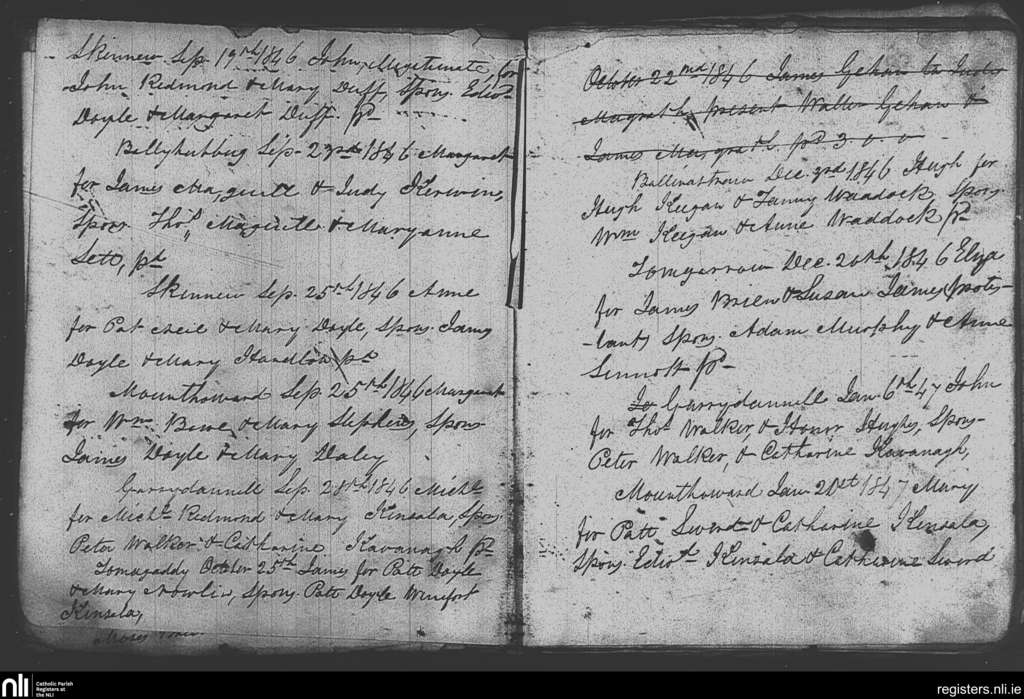 Skinnew Sep. 19th 1846 John, Illegitimate, for
John Redmond & Mary Duff, Spons. Edwd
Doyle & Margaret Duff. pd
Ballyhubbug Sep. 23rd 1846 Margaret
for James Maguire & Judy Kerwin,
Spons. Thos Maguire & Maryanne
Lett, pd
Skinnew Sep. 25th 1846 Anne
for Pat Neil & Mary Doyle, Spons. James
Doyle & Mary pd
Mounthoward Sep. 25th 1846 Margaret
for Wm Bowe & Mary Stephens, Spons
James Doyle & Mary Daley
Garrydannell Sep. 28th 1846 Michl
for Michl Redmond & Mary Kinsala, Spons
Peter Walker & Catharine Kavanagh pd
Tomagaddy October 25th James for Patt Doyle
& Mary Nowlin, Spons. Patt Doyle Winefort
Kinsela,
Moses
October 22nd 1846 James Gehan to Judy
Magrath, present Walter Gehan &
James Magrath pd 3. 0. 0
Ballinastraw Dec. 3rd 1846 Hugh for
Hugh Keegan & Fanny Waddock, Spons
Wm Keegan & Anne Waddock pd
Tomgarrow Dec. 20th, 1846 Eliza
for James Brien & Susan James (protes-
-tant) Spons. Adam Murphy & Anne
Sinnott pd
Garrydannell Jan. 6th 47 John
for Thos Walker, & Honor Hughs, Spons-
Peter Walker, & Catharine Kavanagh,
Mounthoward Jan 20st 1847 Mary
for Patt Sword & Catharine Kinsala,
Spons. Edwd Kinsala & Catharine Sword
nli
Catholic Parish
Registers at
the NLI
registers.nli.ie